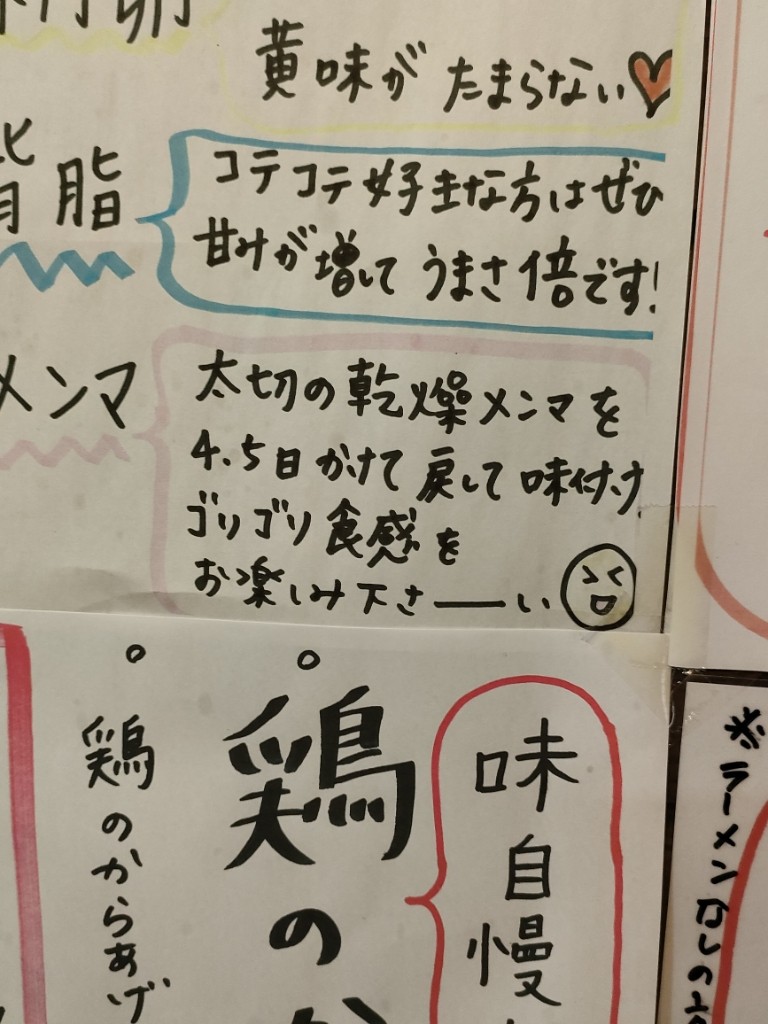 黄味が たまらない
背脂
コテコテ好きな方はぜひ
甘みが増して うまさ倍です!
メンマ
太切の乾燥メンマを
4.5日かけて戻して味付け
ゴリゴリ食感を
お楽しみ下さーーい
味自慢
鶏の
鶏のからあげ
※ラーメンなしの